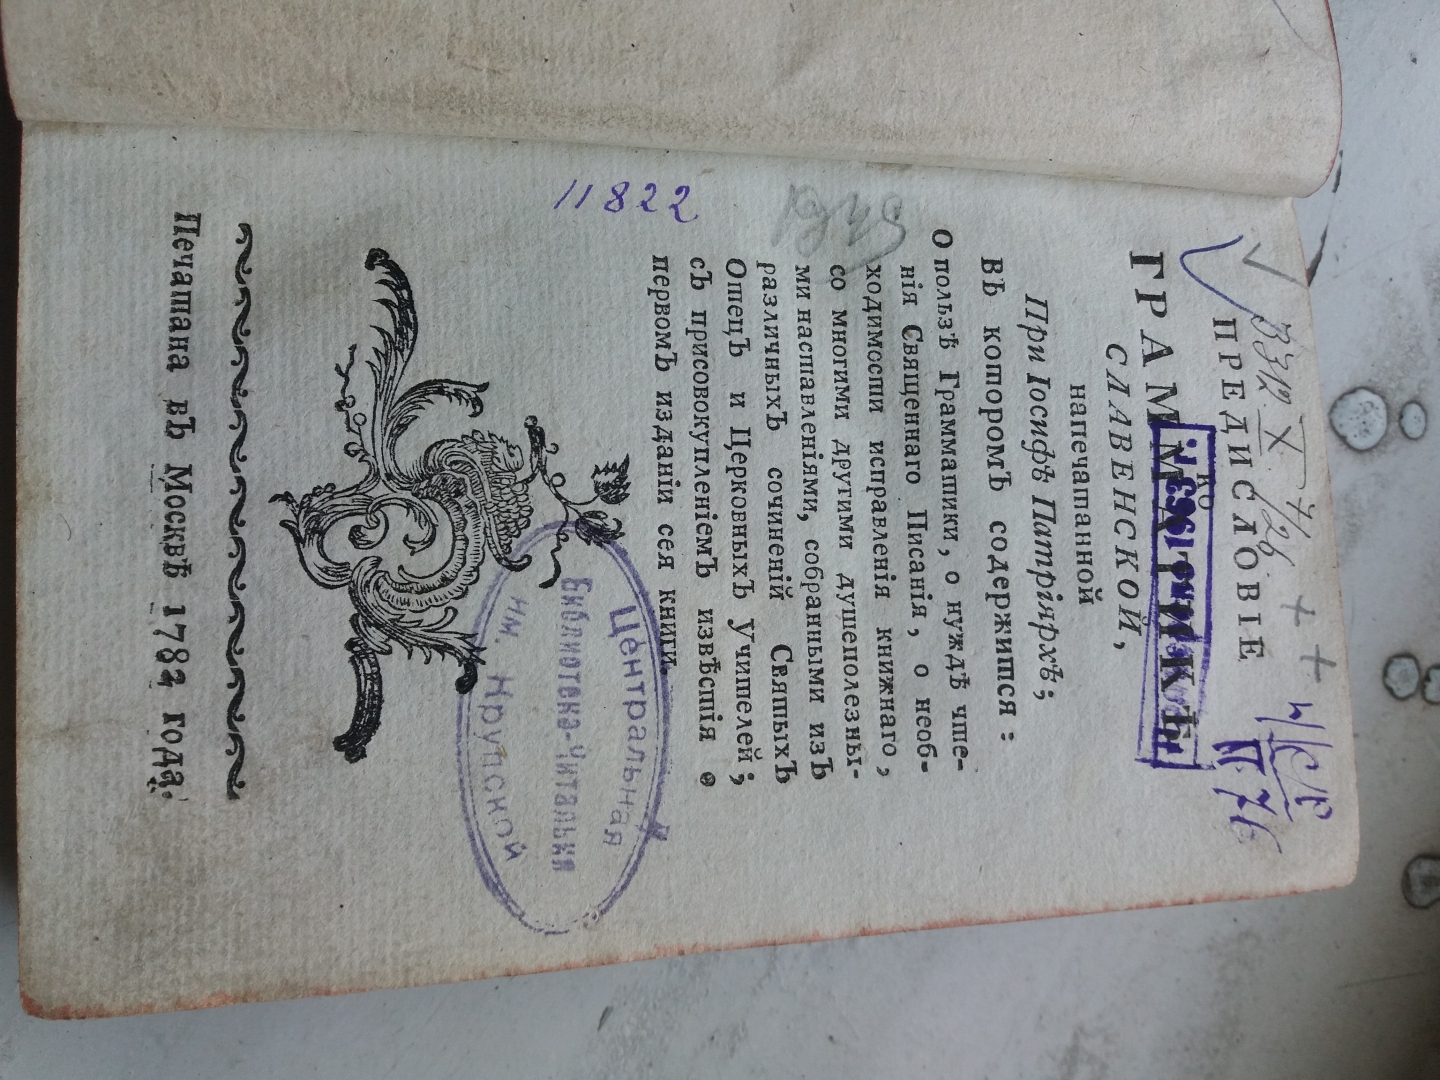 ПРЕДИСЛОВІЕ
КО
ГРАММАТИКѢ
СЛАВЕНСКОЙ,
напечатанной
При Іосифѣ Патріярхѣ;
ВЪ которомЪ содержится:
О пользѣ Грамматики, о нуждѣ чте-
нія Священнаго Писанія, о необ-
ходимости исправленія книжнаго,
со многими другими душеполезны-
ми наставленіями, собранными изЪ
различныхЪ сочиненій СвятыхЪ
ОтецЪ и ЦерковныхЪ Учителей;
сЪ присовокупленіемЪ извѣстія о
первомЪ изданіи сея книги.
11822
Центральная
Библиотека-Читальня
им. Крупской
Печатана вЪ Москвѣ 1782 года.